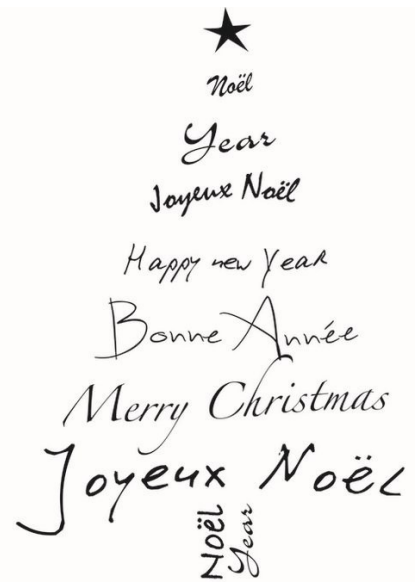 Noël
Year
Joyeux Noël
Happy new Year
Bonne Année
Merry Christmas
Joyeux Noël
Noël
Year